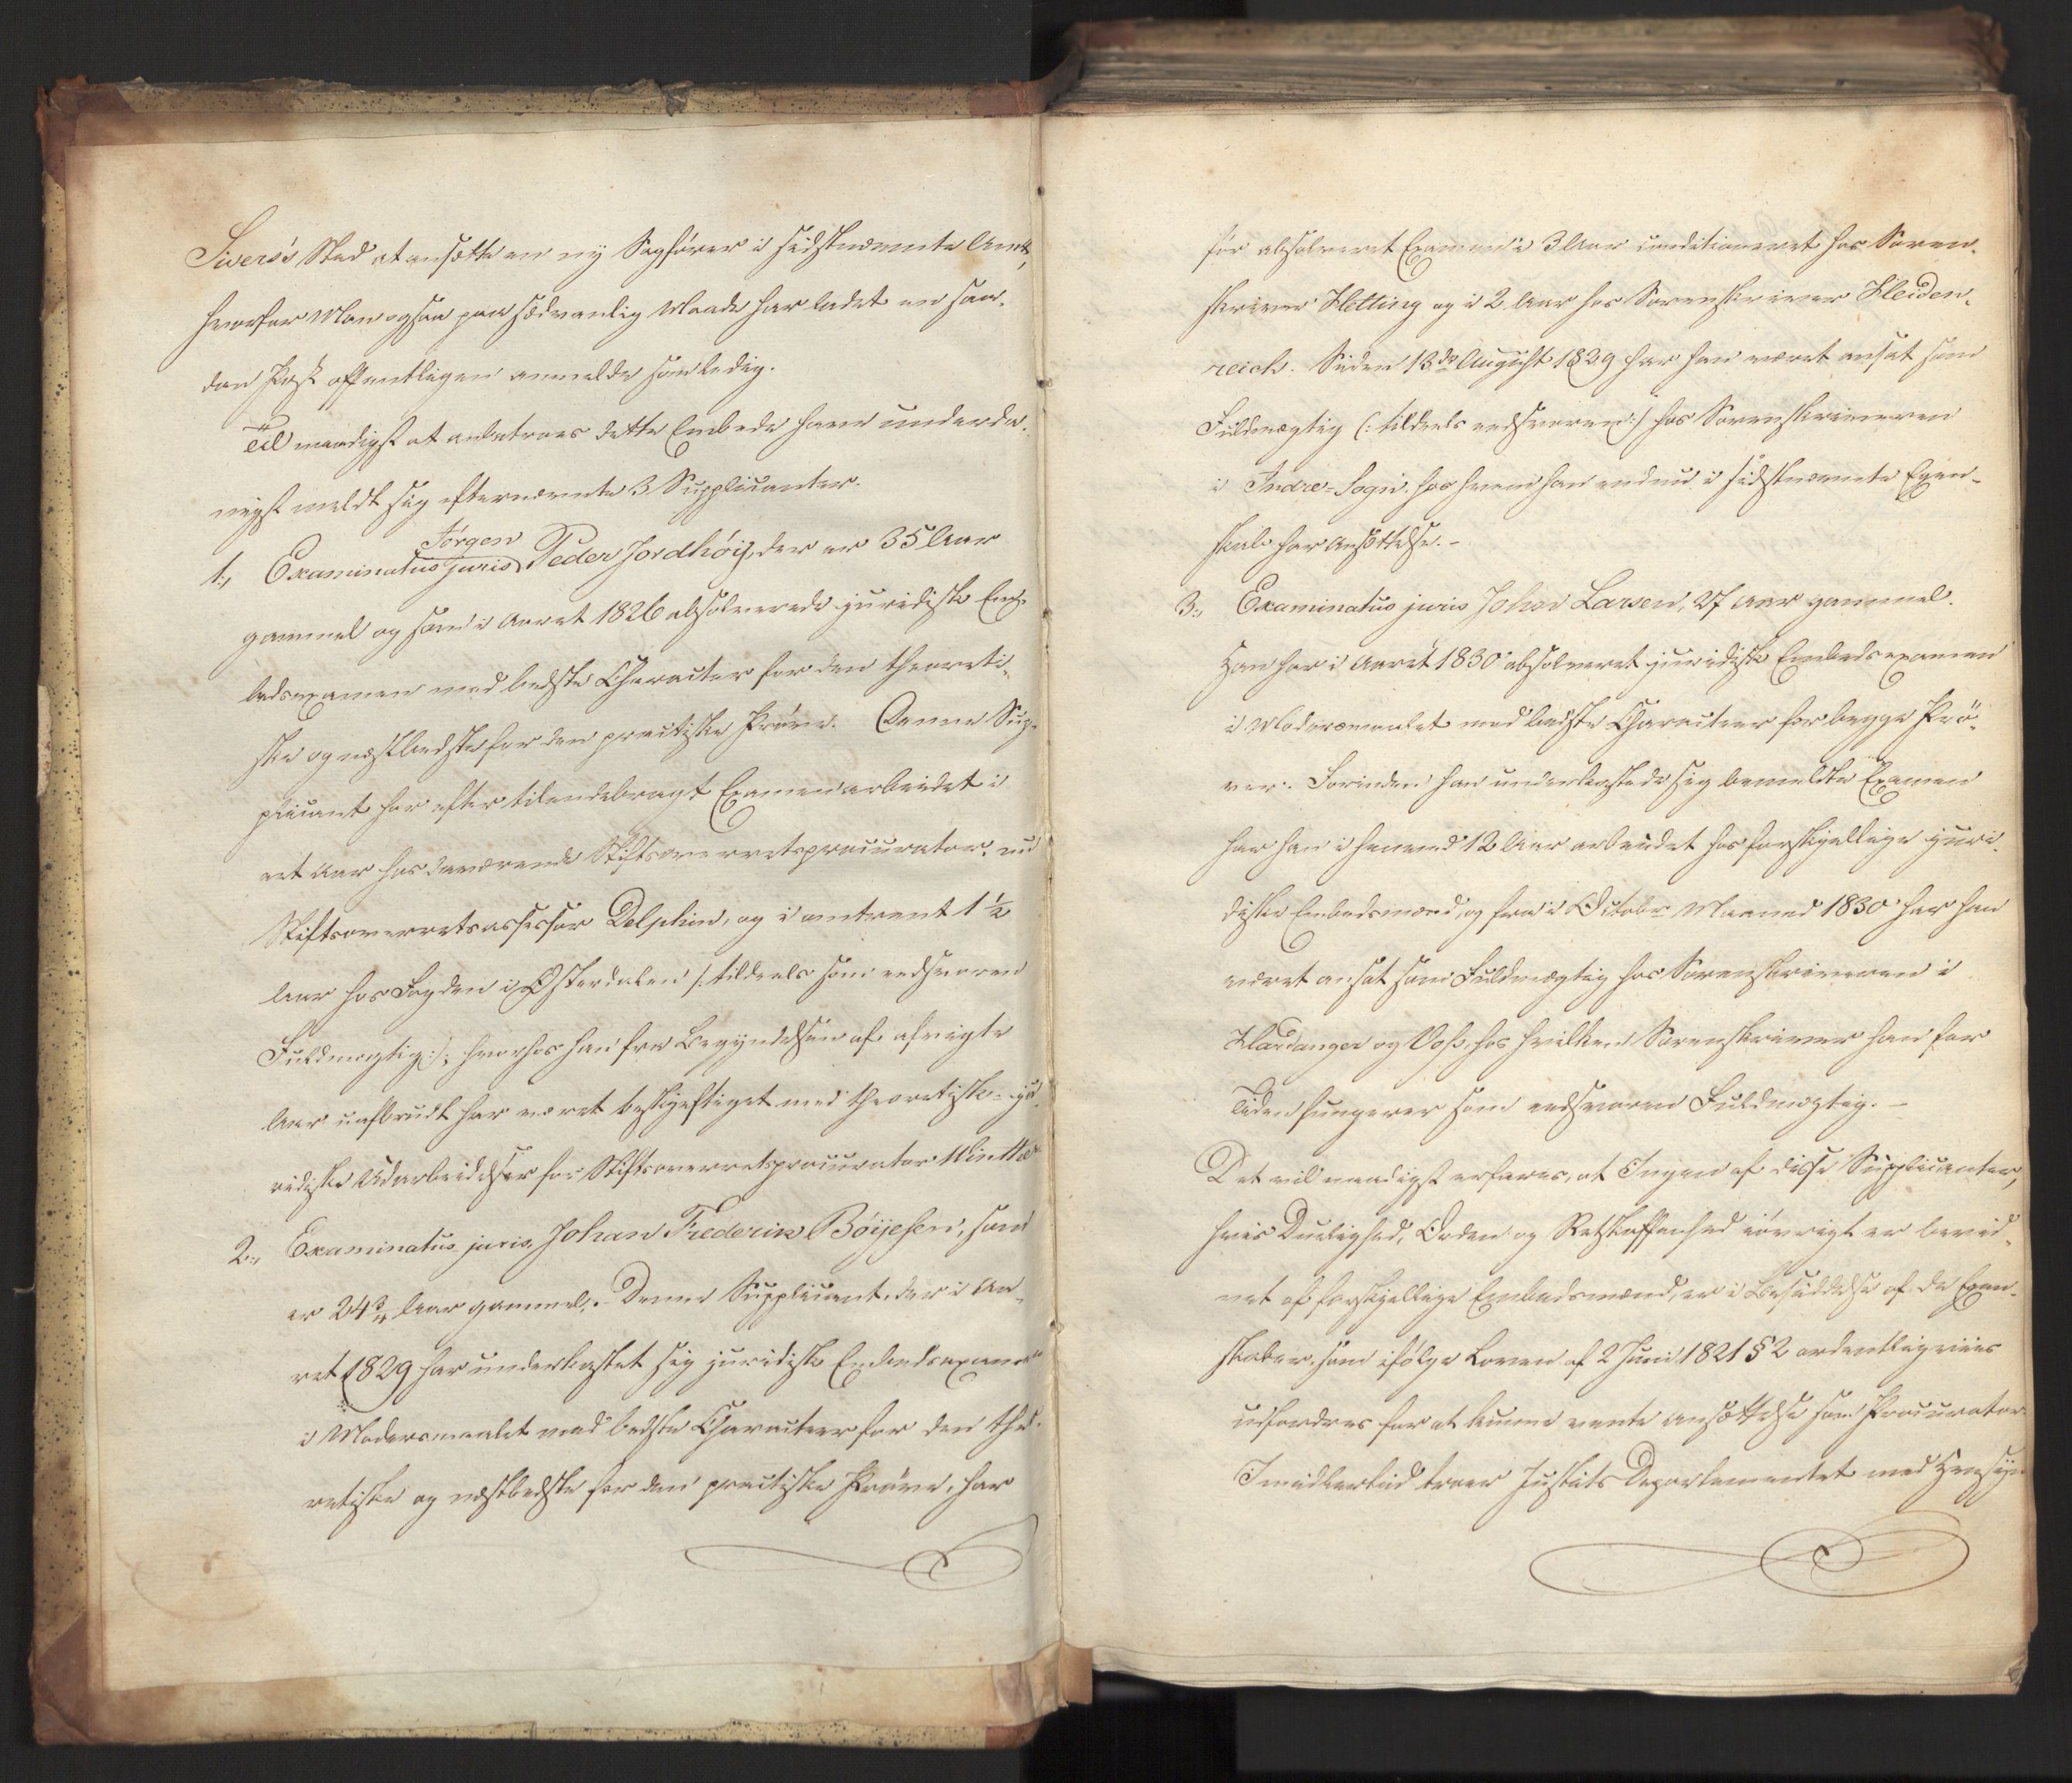 Sivers's Sted at ansætte en ny Sagfører i sidstnævnte Amt,
hvorfor Man ogsaa paa sædvanlig Maade har ladet en saa-
dan Post offentligen anmelde som ledig.
Til naadigst at anbetroes dette Embede have underda-
nigst meldt sig efternævnte 3 Supplicanter.
1, Examinatus juris Jörgen Peder Jordhöij, der er 35 Aar
gammel og som i Aaret 1826 absolverede juridisk Em-
bedsexamen med bedste Character for den theoreti-
ske og næstbedste for den practiske Prøve. Denne Sup-
plicant har efter tilendebragt Examen arbeidet i
eet Aar hos daværende Stiftsoverretsprocurator, nu
Stiftsoverretsassessor Delphin, og i omtrent 1½
Aar hos Fogden i Østerdalen /: tildeels som eedsvoren
Fuldmægtig :/, hvorhos han fra Begyndelsen af afvigte
Aar uafbrudt har været beskjæftiget med theoretisk-ju-
ridiske Udarbeidelser for Stiftsoverretsprocurator Winther
2, Examinatus juris, Johan Frederik Böijesen, som
er 24¾ Aar gammel. Denne Supplicant, der i Aa-
ret 1829 har underkastet sig juridisk Embedsexamen
i Modersmaalet med bedste Characteer for den theo-
retiske og næstbedste for den practiske Prøve, har
før absolveret Examen i 3 Aar conditioneret hos Soren-
skriver Helting og i 2 Aar hos Sorenskriver Heiden-
reich. Siden 13de August 1829 har han været ansat som
Fuldmægtig (: tildeels eedsvoren :) hos Sorenskriveren
i Indre-Sogn, hos hvem han endnu i sidstnævnte Egen-
skab har Ansættelse. -
3, Examinatus juris Johan Larsen, 27 Aar gammel.
Han har i Aaret 1830 absolveret juridisk Embedsexamen
i Modersmaalet med bedste Characteer for begge Prø-
ver. Forinden han underkastede sig bemeldte Examen
har han i henved 12 Aar arbeidet hos forskjellige juri-
diske Embedsmænd, og fra i October Maaned 1830 har han
været ansat som Fuldmægtig hos Sorenskriveren i
Hardanger og Voss, hos hvilken Sorenskriver han for
Tiden fungerer som eedsvoren Fuldmægtig. -
Det vil naadigst erfares, at Ingen af disse Supplicanter,
hvis Duelighed, Orden og Retskaffenhed iøvrigt er bevid-
net af forskjellige Embedsmænd, er i Besiddelse af de Egen-
skaber, som ifølge Loven af 2 Juni 1821 § 2 ordentligviis
udfordres for at kunne vente Ansættelse som Procurator.
Imidlertid troer Justits Departementet med Hensyn